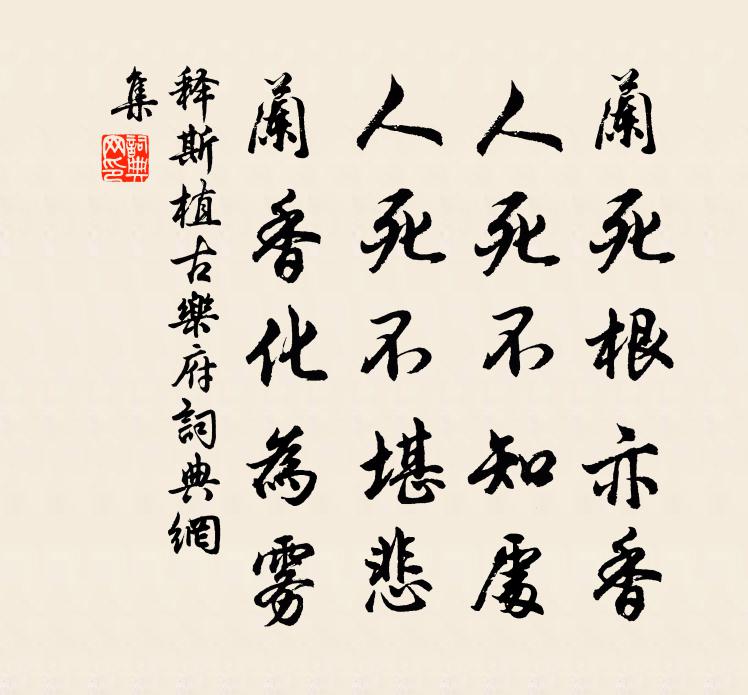 蘭死根亦香
人死不知處
人死不堪悲
蘭香化為霧
释斯植古樂府詞典網
集
詞典
网印